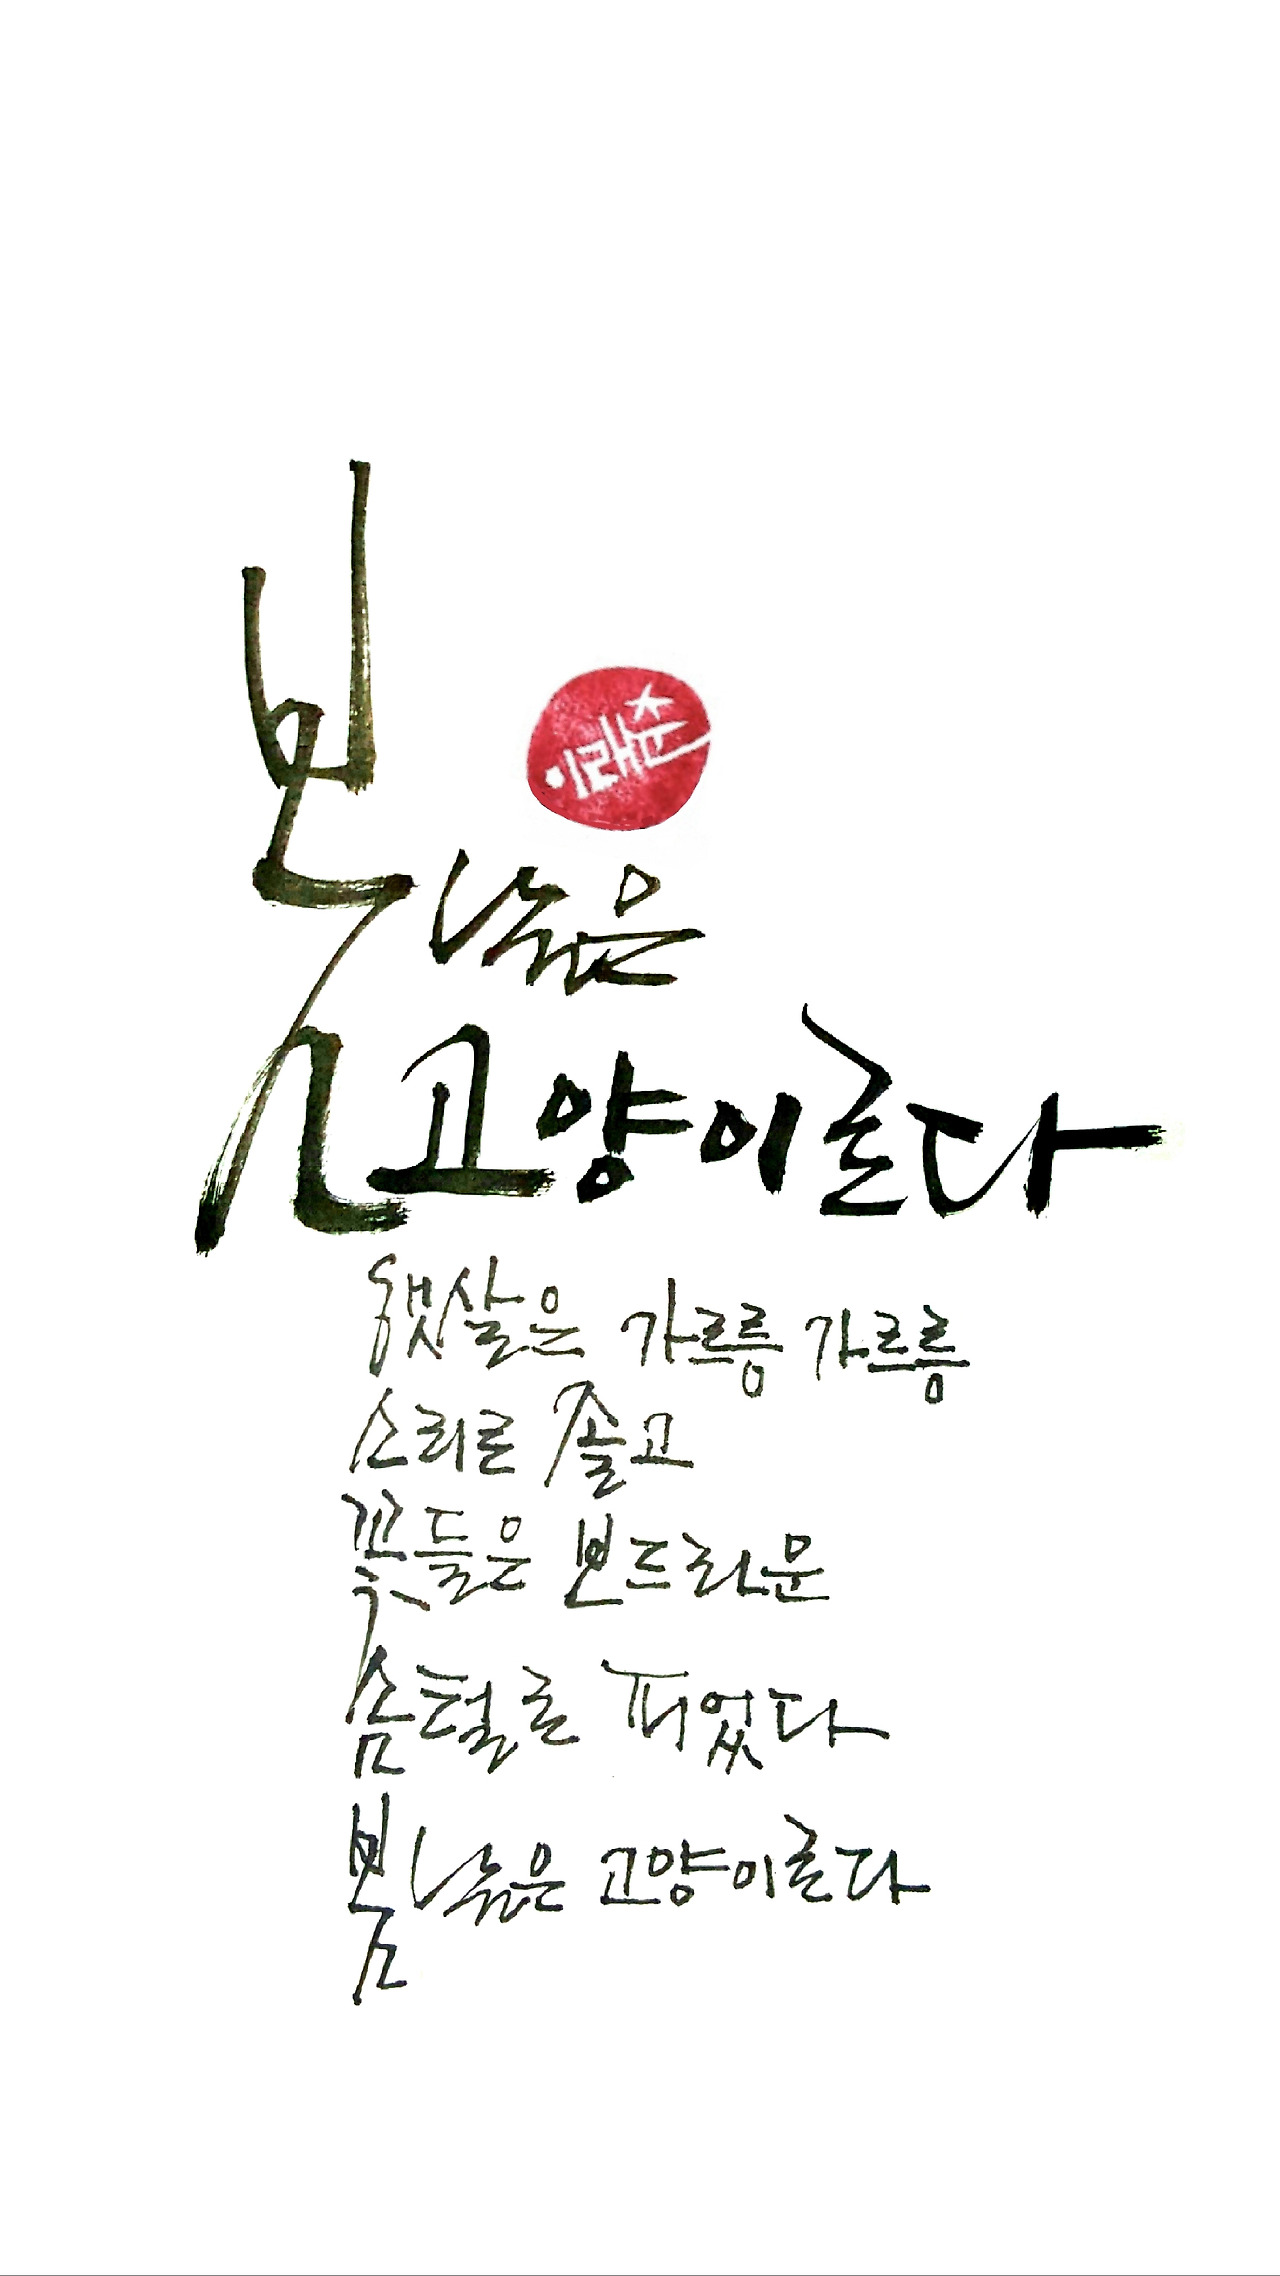 봄날은
고양이로다
햇살은 가르릉 가르릉
소리로 졸고
꽃들은 보드라운
솜털로 피었다
봄날은 고양이로다